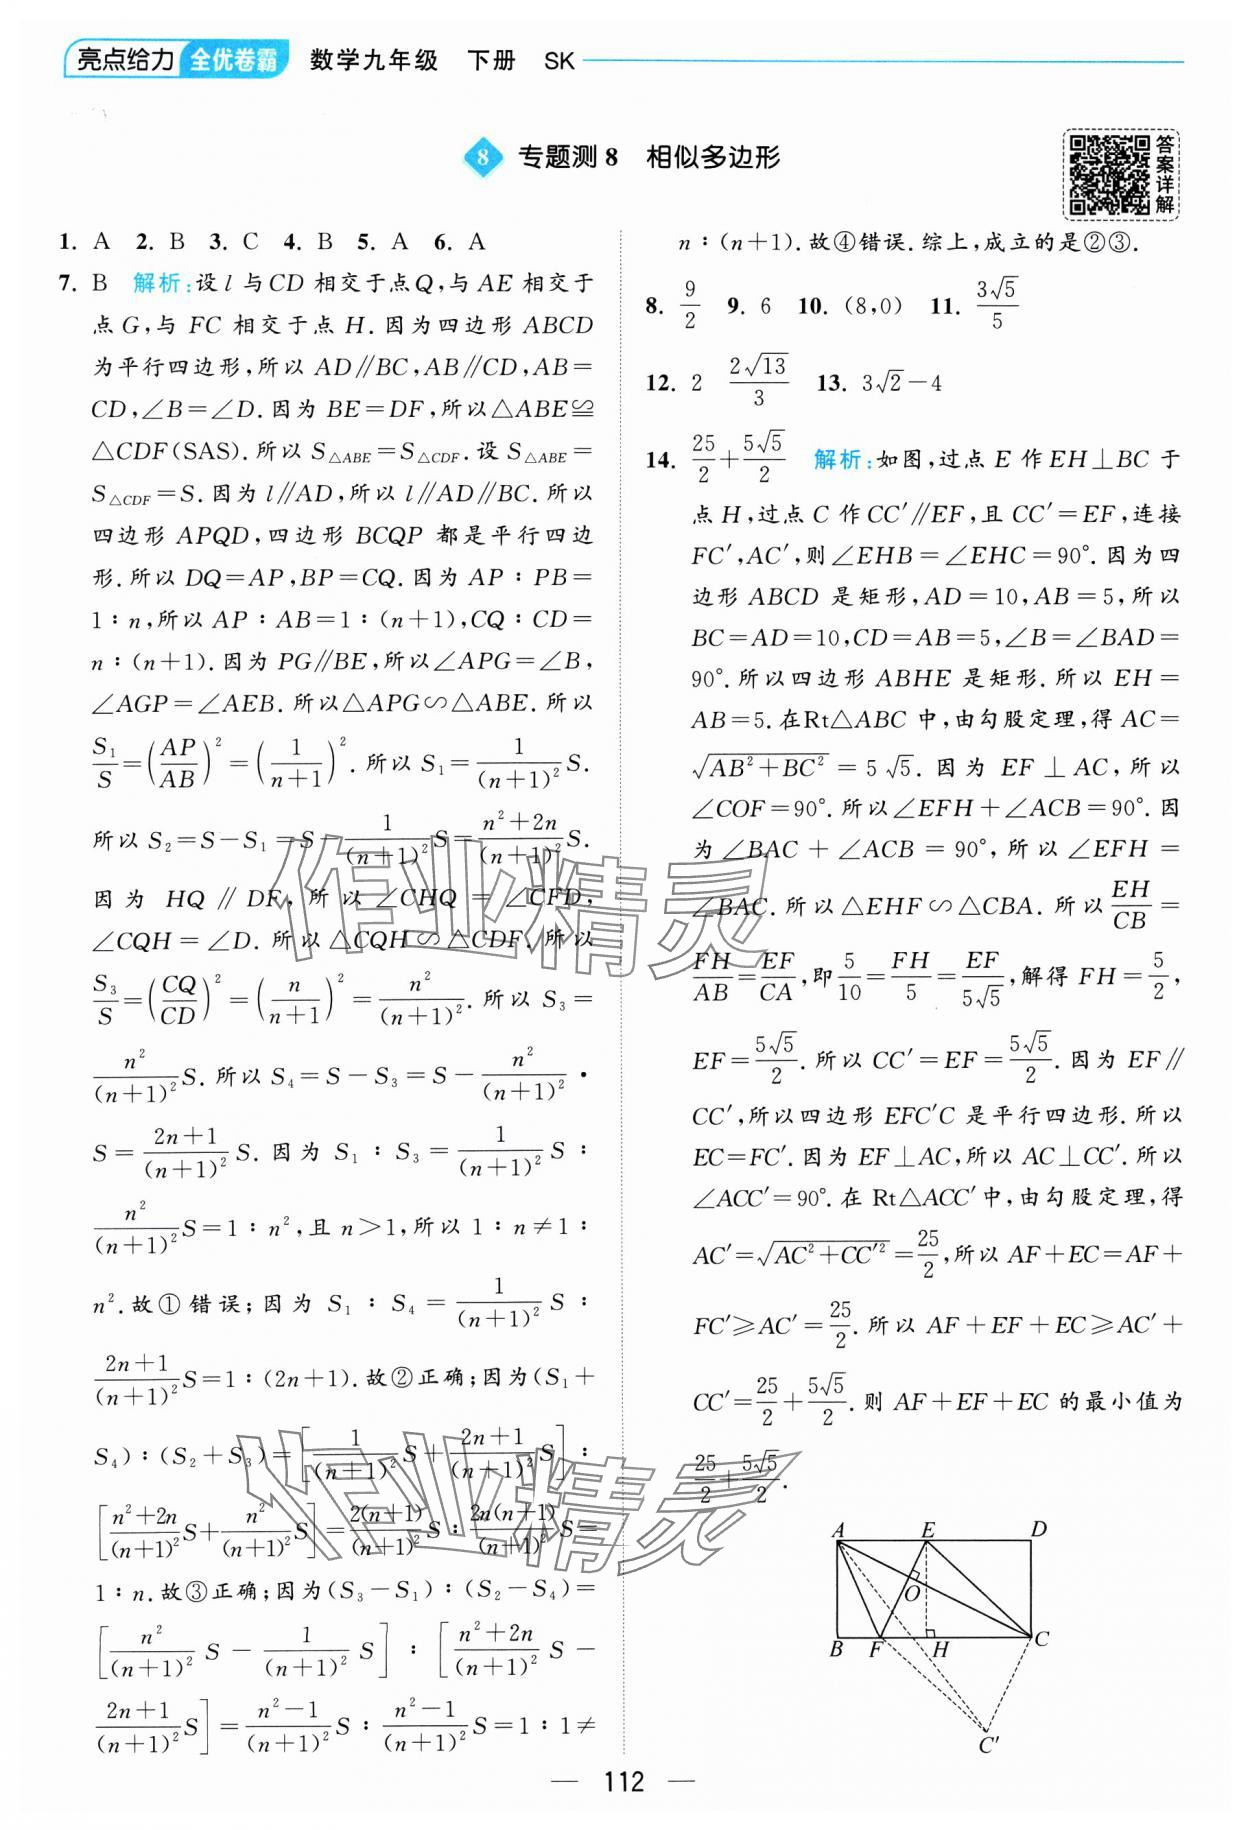 亮点给力 全优卷霸 数学九年级 下册 SK
8 专题测8 相似多边形
答案详解
1. A 2. B 3. C 4. B 5. A 6. A
7. B 解析:设 l 与 CD 相交于点 Q,与 AE 相交于
点 G,与 FC 相交于点 H. 因为四边形 ABCD
为平行四边形,所以 AD∥BC,AB∥CD,AB=
CD,∠B=∠D. 因为 BE=DF,所以△ABE≌
△CDF(SAS). 所以 S△ABE=S△CDF. 设 S△ABE=
S△CDF=S. 因为 l∥AD,所以 l∥AD∥BC. 所以
四边形 APQD,四边形 BCQP 都是平行四边
形. 所以 DQ=AP,BP=CQ. 因为 AP∶PB=
1∶n,所以 AP∶AB=1∶(n+1),CQ∶CD=
n∶(n+1). 因为 PG∥BE,所以∠APG=∠B,
∠AGP=∠AEB. 所以△APG∽△ABE. 所以
S₁/S=(AP/AB)²=(1/(n+1))². 所以 S₁=1/(n+1)² S.
所以 S₂=S-S₁=S-1/(n+1)² S=(n²+2n)/(n+1)² S.
因为 HQ∥DF,所以∠CHQ=∠CFD,
∠CQH=∠D. 所以△CQH∽△CDF. 所以
S₃/S=(CQ/CD)²=(n/(n+1))²=n²/(n+1)². 所以 S₃=
n²/(n+1)² S. 所以 S₄=S-S₃=S-n²/(n+1)²·
S=(2n+1)/(n+1)² S. 因为 S₁∶S₃=1/(n+1)² S∶
n²/(n+1)² S=1∶n²,且 n>1,所以 1∶n≠1∶
n². 故①错误;因为 S₁∶S₄=1/(n+1)² S∶
(2n+1)/(n+1)² S=1∶(2n+1). 故②正确;因为(S₁+
S₄)∶(S₂+S₃)=[1/(n+1)² S+(2n+1)/(n+1)² S]∶
[(n²+2n)/(n+1)² S+n²/(n+1)² S]=2(n+1)/(n+1)² S∶2n(n+1)/(n+1)² S=
1∶n. 故③正确;因为(S₃-S₁)∶(S₂-S₄)=
[n²/(n+1)² S-1/(n+1)² S]∶[(n²+2n)/(n+1)² S-
(2n+1)/(n+1)² S]=(n²-1)/(n+1)² S∶(n²-1)/(n+1)² S=1∶1≠
n∶(n+1). 故④错误. 综上,成立的是②③.
8. 9/2 9. 6 10. (8,0) 11. 3√5/5
12. 2 2√13/3 13. 3√2-4
14. 25/2+5√5/2 解析:如图,过点 E 作 EH⊥BC 于
点 H,过点 C 作 CC′∥EF,且 CC′=EF,连接
FC′,AC′,则∠EHB=∠EHC=90°. 因为四
边形 ABCD 是矩形,AD=10,AB=5,所以
BC=AD=10,CD=AB=5,∠B=∠BAD=
90°. 所以四边形 ABHE 是矩形. 所以 EH=
AB=5. 在Rt△ABC 中,由勾股定理,得 AC=
√(AB²+BC²)=5√5. 因为 EF⊥AC,所以
∠COF=90°. 所以∠EFH+∠ACB=90°. 因
为∠BAC+∠ACB=90°,所以∠EFH=
∠BAC. 所以△EHF∽△CBA. 所以 EH/CB=
FH/AB=EF/CA,即 5/10=FH/5=EF/5√5,解得 FH=5/2,
EF=5√5/2. 所以 CC′=EF=5√5/2. 因为 EF∥
CC′,所以四边形 EFC′C 是平行四边形. 所以
EC=FC′. 因为 EF⊥AC,所以 AC⊥CC′. 所以
∠ACC′=90°. 在 Rt△ACC′中,由勾股定理,得
AC′=√(AC²+CC′²)=25/2,所以 AF+EC=AF+
FC′≥AC′=25/2. 所以 AF+EF+EC≥AC′+
CC′=25/2+5√5/2. 则 AF+EF+EC 的最小值为
25/2+5√5/2.
A E D
O
B F H C
C′
作业精灵
作业精灵
— 112 —